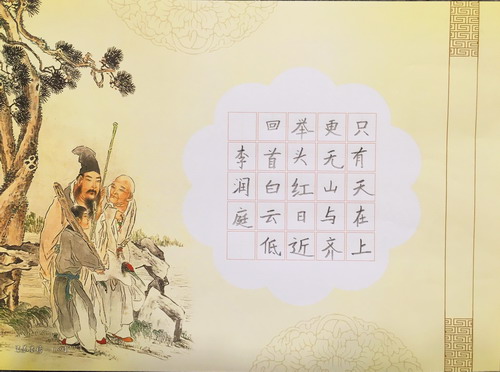 只有天在上
更无山与齐
举头红日近
回首白云低
李润庭